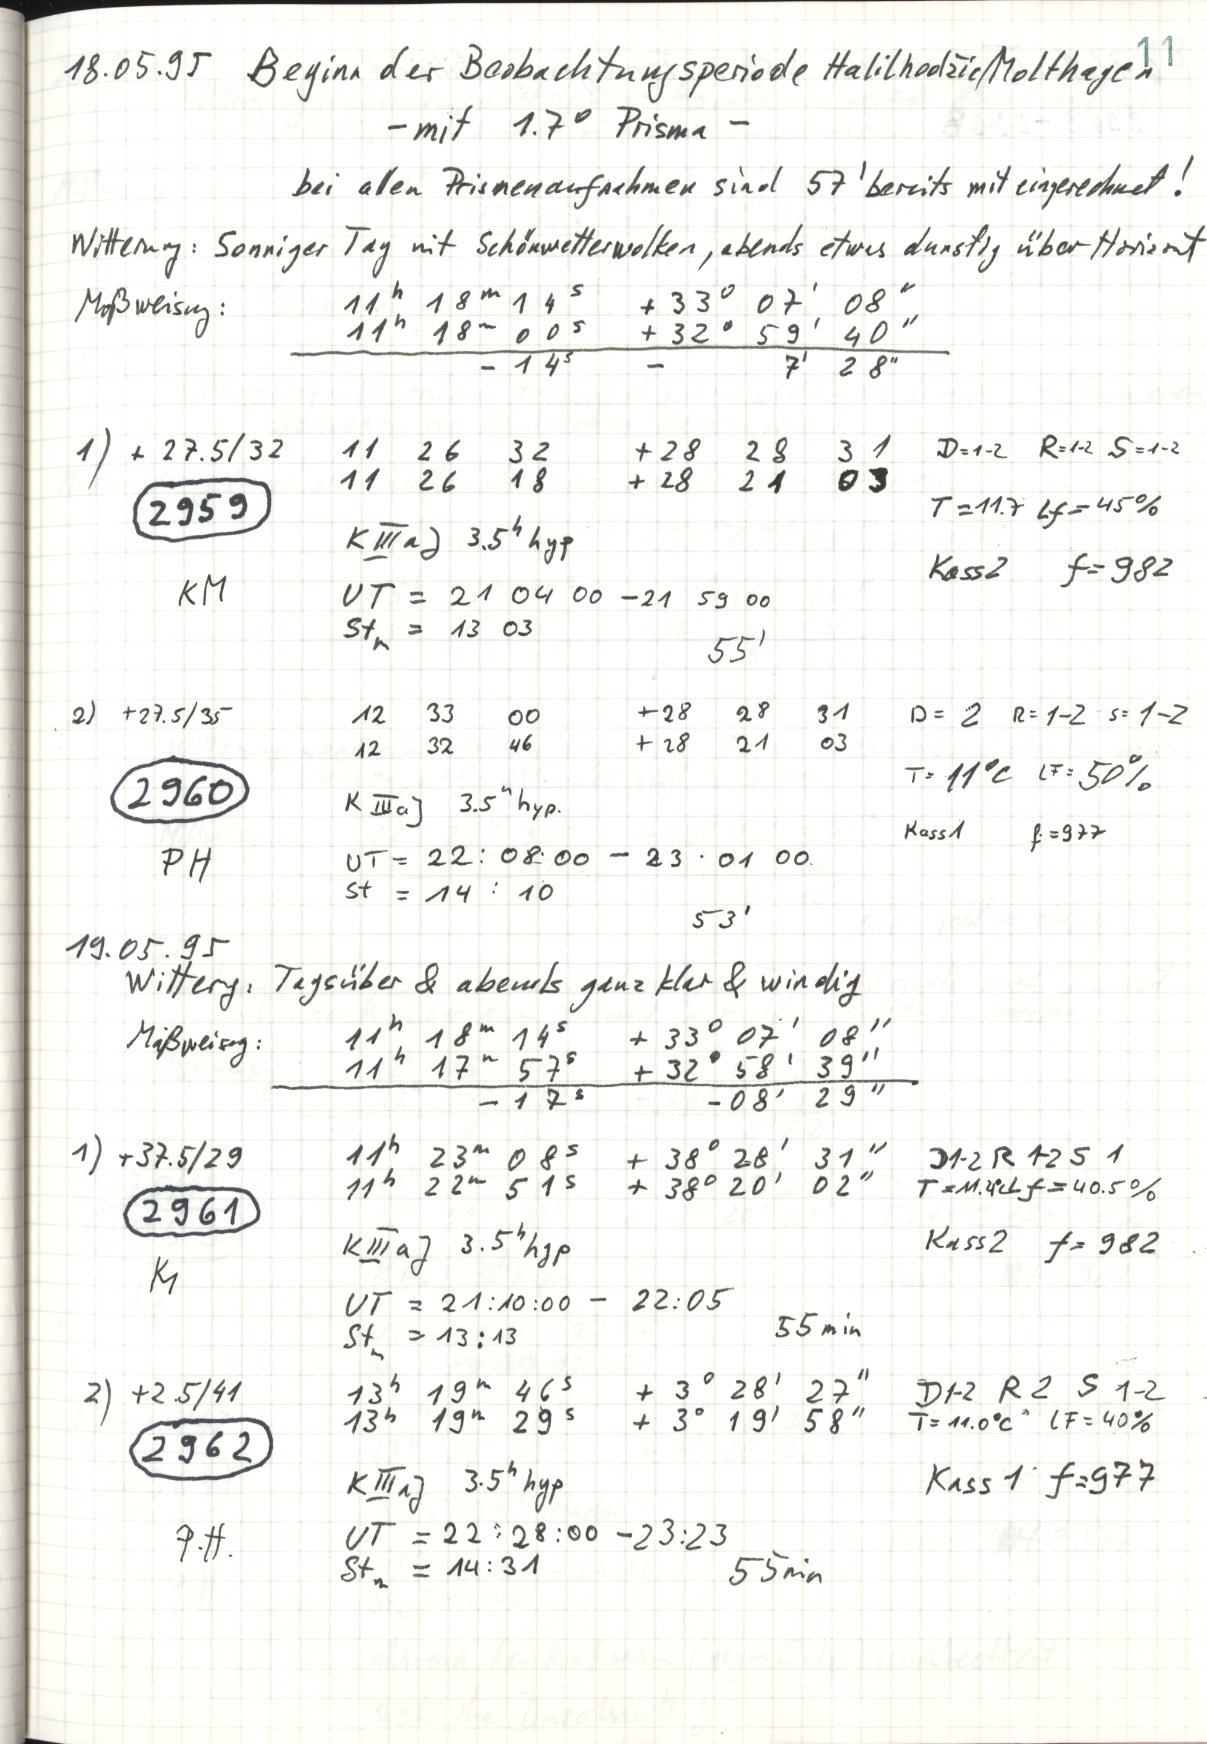 11
18.05.95 Beginn der Beobachtungsperiode Halilhodzic/Molthagen
- mit 1.7° Prisma -
bei allen Prismenaufnahmen sind 57' bereits mit eingerechnet!
Witterung: Sonniger Tag mit Schönwetterwolken, abends etwas dunstig über Horizont
Mißweisung: 11h 18m 14s + 33° 07' 08"
11h 18m 00s + 32° 59' 40"
- 14s - 7' 28"
1) + 27.5/32 11 26 32 +28 28 31 D=1-2 R=1-2 S=1-2
11 26 18 +28 21 03
2959 T=11.7 Lf=45%
K IIIaJ 3.5h hyp
Kass2 f=982
KM UT = 21 04 00 - 21 59 00
Stn = 13 03
55'
2) +27.5/35 12 33 00 +28 28 31 D=2 R=1-2 S=1-2
12 32 46 +28 21 03
2960 T=11°C LF=50%
K IIIaJ 3.5h hyp.
Kass1 f=977
PH UT = 22:08:00 - 23.01 00
St = 14:10
53'
19.05.95
Witterg: Tagsüber & abends ganz klar & windig
Mißweisg: 11h 18m 14s + 33° 07' 08"
11h 17m 57s + 32° 58' 39"
- 17s - 08' 29"
1) +37.5/29 11h 23m 08s + 38° 28' 31" D1-2 R 1-2 S 1
11h 22m 51s + 38° 20' 02" T=11.4 Lf=40.5%
2961
K IIIaJ 3.5h hyp Kass2 f=982
KM
UT = 21:10:00 - 22:05
Stn = 13:13 55min
2) +2.5/41 13h 19m 46s + 3° 28' 27" D1-2 R2 S 1-2
13h 19m 29s + 3° 19' 58" T=11.0°C LF=40%
2962
K IIIaJ 3.5h hyp Kass1 f=977
P.H. UT = 22:28:00 - 23:23
Stn = 14:31 55min